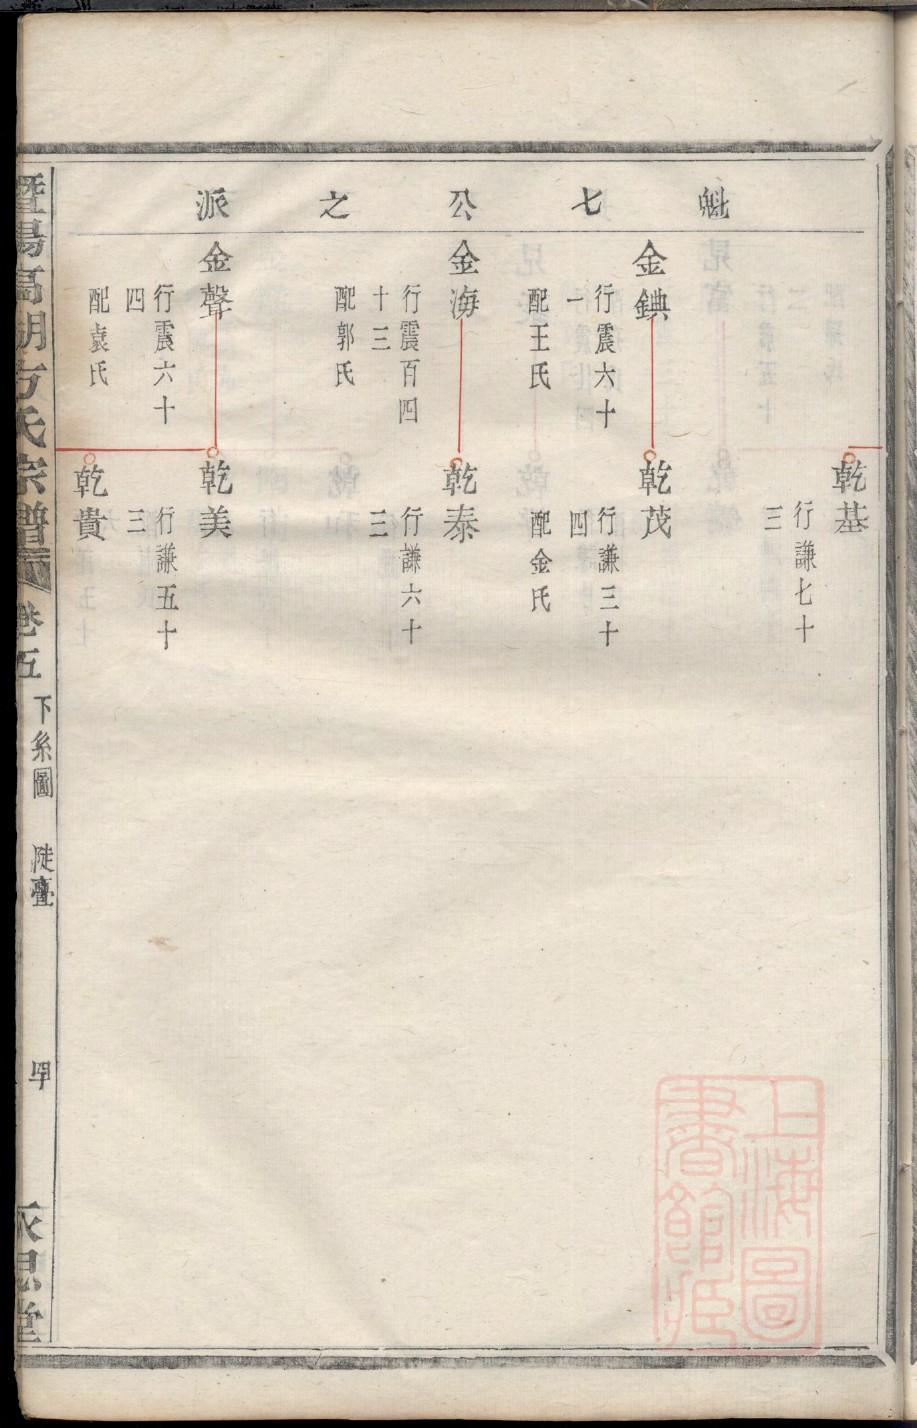 魁七公之派
乾基
行謙七十
三
金錪
行震六十
一
配王氏
乾茂
行謙三十
四
配金氏
金海
行震百四
十三
配郭氏
乾泰
行謙六十
三
金聲
行震六十
四
配袁氏
乾美
行謙五十
三
乾貴
暨陽高湖方氏宗譜
卷五
下系圖
陡亹
永思堂
上海圖
書館藏